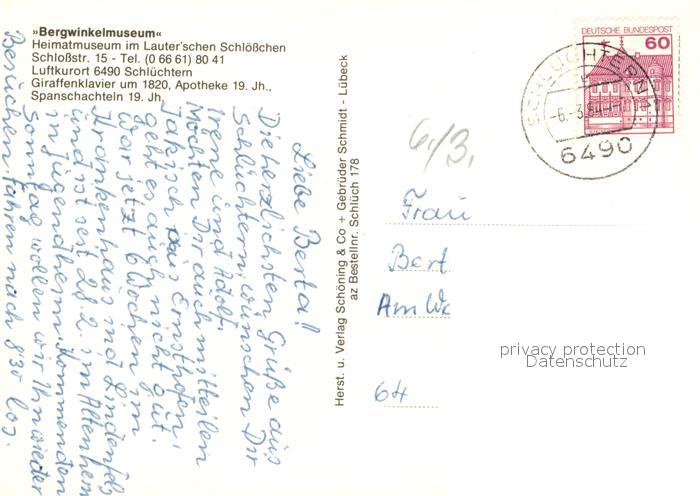 »Bergwinkelmuseum«
Heimatmuseum im Lauter'schen Schlößchen
Schloßstr. 15 - Tel. (0 66 61) 80 41
Luftkurort 6490 Schlüchtern
Giraffenklavier um 1820, Apotheke 19. Jh.,
Spanschachteln 19. Jh.
Liebe Berta!
Die herzlichsten Grüße aus
Schlüchtern wünschen Dir
Irene und Adolf.
Möchten Dir auch mitteilen
aus Ernsthofen,
geht es auch nicht gut.
War jetzt 6 Wochen im
Krankenhaus in Lindenfels
und ist seit 28.2. im Altenheim
in Jugendheim. Kommenden
Sonntag wollen wir Ihn wieder
Besuchen. fahren nach 8 30 los.
Herst. u. Verlag Schöning & Co + Gebrüder Schmidt - Lübeck
az Bestellnr. Schlüch 178
DEUTSCHE BUNDESPOST
60
SCHLÜCHTERN 1
-6.-3.84
6490
6./3.
Frau
Bert
Am We
64
privacy protection
Datenschutz